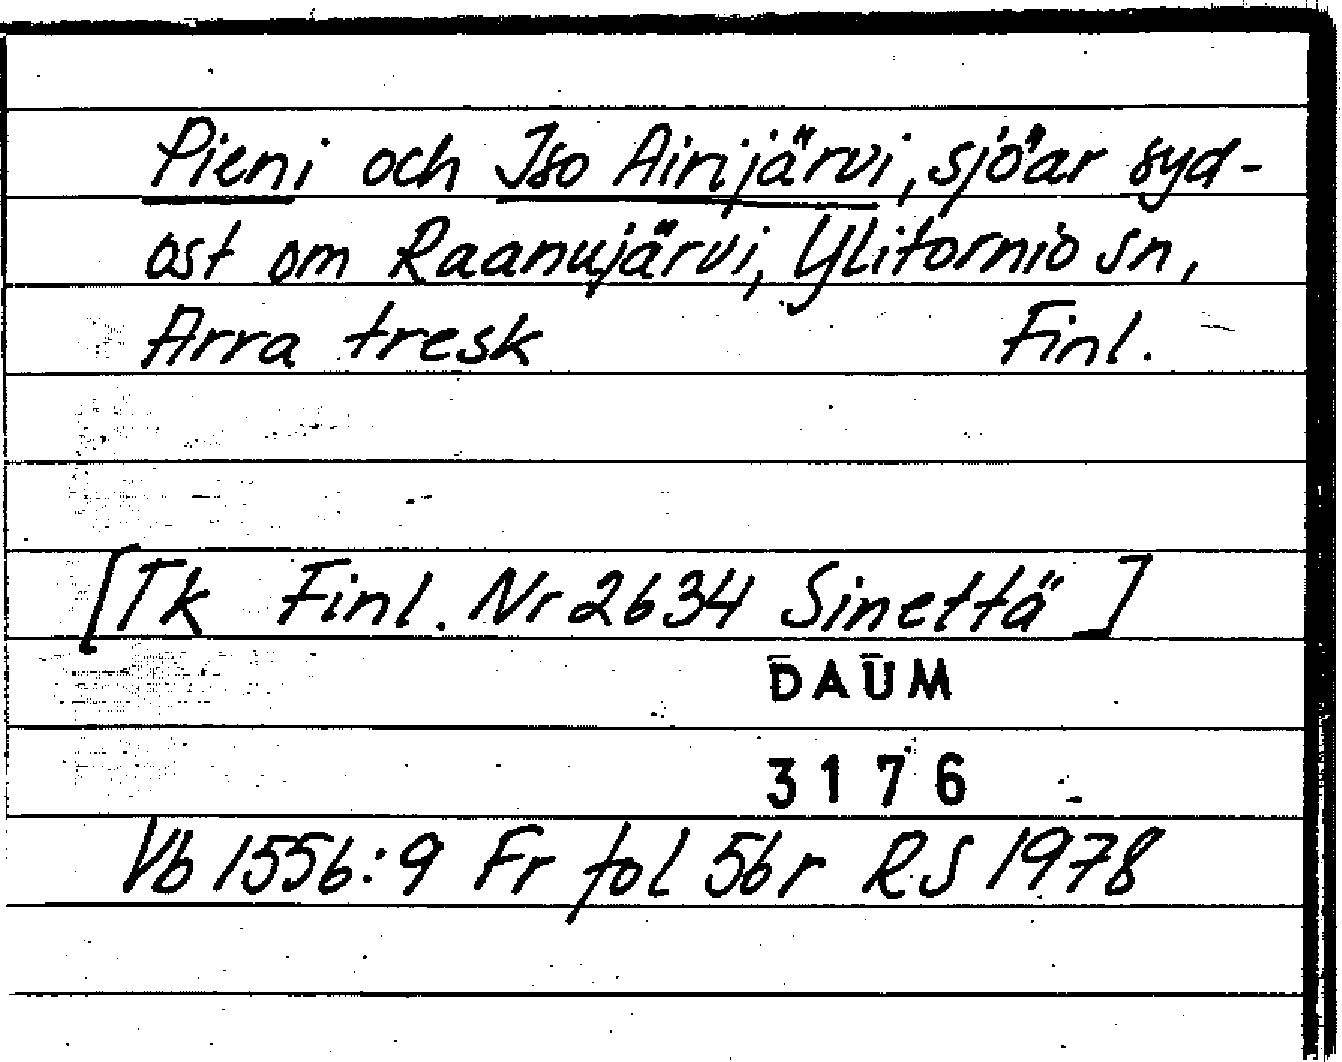 Pieni och Iso Airijärvi, sjöar syd-
ost om Raanujärvi, Ylitornio sn,
Arra tresk Finl.
[Tk Finl. Nr 2634 Sinettä]
DAUM
3176
Vb 1556:9 Fr fol 56r RS 1978